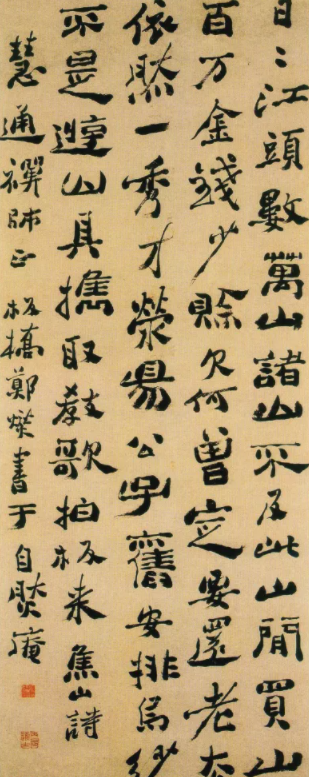 日〻江頭數萬山諸山不及此山閒買山
百万金錢少賒欠何曾定要還老夫
依然一秀才滎昜公子舊安排烏紗
不是遊山具攜取教歌拍板来焦山詩
慧通禪師正板橋鄭燮書于自然庵